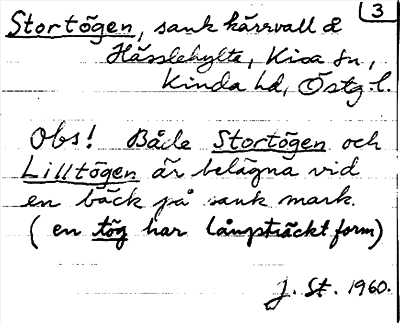 3
Stortōgen, sank kärrvall å
Hässlehylte, Kisa sn,
Kinda hd, Östg.l.
Obs! Både Stortōgen och
Lilltōgen är belägna vid
en bäck på sank mark.
(en tōg har långsträckt form)
J. St. 1960.